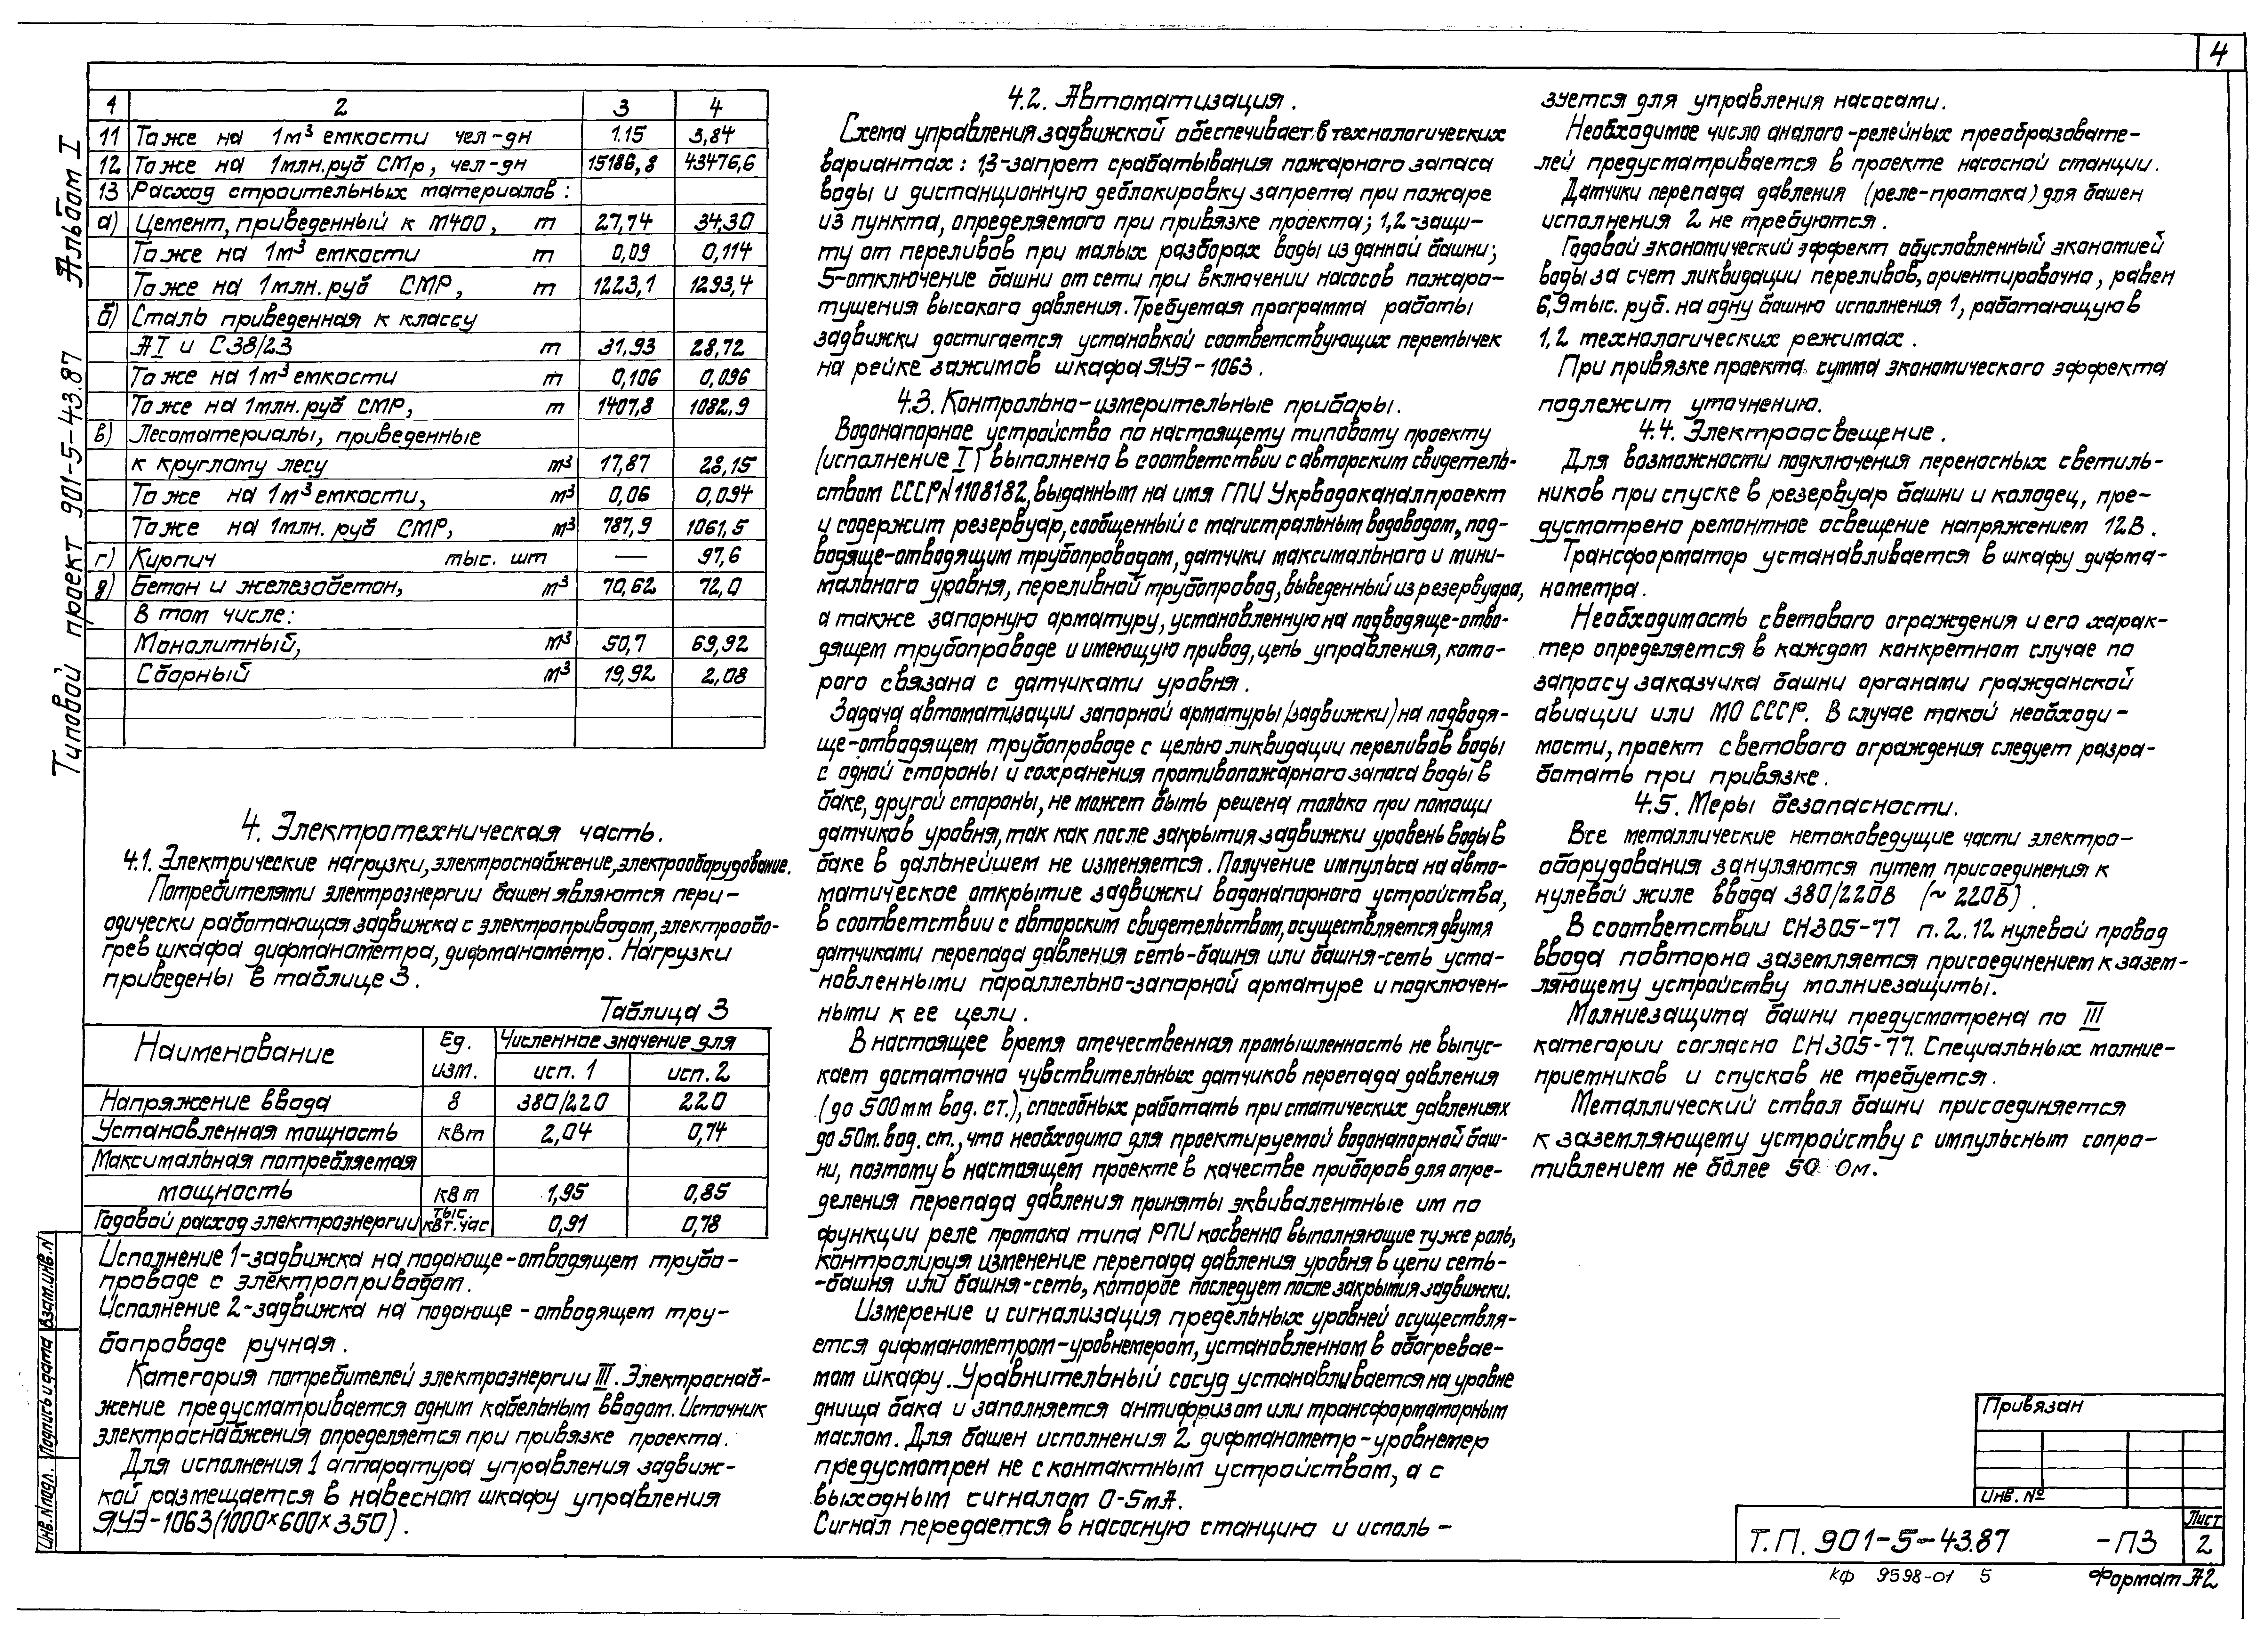 4
Типовой проект 901-5-43.87 Альбом I
1 2 3 4
11 То же на 1м³ емкости чел-дн 1.15 3,84
12 То же на 1млн.руб СМр, чел-дн 15186,8 43476,6
13 Расход строительных материалов:
а) Цемент, приведенный к М400, т 27,74 34.30
То же на 1м³ емкости т 0,09 0,114
То же на 1млн.руб СМР, т 1223,1 1293,4
б) Сталь приведенная к классу
АI и С38/23 т 31,93 28,72
То же на 1м³ емкости т 0,106 0,096
То же на 1млн.руб СМР, т 1407,8 1082,9
в) Лесоматериалы, приведенные
к круглому лесу м³ 17,87 28,15
То же на 1м³ емкости, м³ 0,06 0,094
То же на 1млн. руб СМР, м³ 787,9 1061,5
г) Кирпич тыс. шт — 97,6
д) Бетон и железобетон, м³ 70,62 72,0
В том числе:
Монолитный, м³ 50,7 69,92
Сборный м³ 19,92 2,08
4. Электротехническая часть.
4.1. Электрические нагрузки, электроснабжение, электрооборудование.
Потребителями электроэнергии башен являются пери-
одически работающая задвижка с электроприводом, электрообо-
грев шкафа дифманометра, дифманометр. Нагрузки
приведены в таблице 3.
Таблица 3
Наименование Ед. изм. Численное значение для
исп. 1 исп. 2
Напряжение ввода В 380/220 220
Установленная мощность кВт 2,04 0,74
Максимальная потребляемая
мощность кВт 1,95 0,85
Годовой расход электроэнергии тыс. квт.час 0,91 0,78
Исполнение 1-задвижка на подающе-отводящем трубо-
проводе с электроприводом.
Исполнение 2-задвижка на подающе-отводящем тру-
бопроводе ручная.
Категория потребителей электроэнергии III. Электроснаб-
жение предусматривается одним кабельным вводом. Источник
электроснабжения определяется при привязке проекта.
Для исполнения 1 аппаратура управления задвиж-
кой размещается в навесном шкафу управления
ЯУЭ-1063(1000×600×350).
4.2. Автоматизация.
Схема управления задвижкой обеспечивает: в технологических
вариантах: 1,3-запрет срабатывания пожарного запаса
воды и дистанционную деблокировку запрета при пожаре
из пункта, определяемого при привязке проекта; 1,2-защи-
ту от переливов при малых разборах воды из данной башни;
5-отключение башни от сети при включении насосов пожаро-
тушения высокого давления. Требуемая программа работы
задвижки достигается установкой соответствующих перемычек
на рейке зажимов шкафа ЯУЭ-1063.
4.3. Контрольно-измерительные приборы.
Водонапорное устройство по настоящему типовому проекту
(исполнение I) выполнено в соответствии с авторским свидетель-
ством СССР N1108182, выданным на имя ГПИ Укрводоканалпроект
и содержит резервуар, сообщенный с магистральным водоводом, под-
водяще-отводящим трубопроводом, датчики максимального и мини-
мального уровня, переливной трубопровод, выведенный из резервуара,
а также запорную арматуру, установленную на подводяще-отво-
дящем трубопроводе и имеющую привод, цепь управления, кото-
рого связана с датчиками уровня.
Задача автоматизации запорной арматуры (задвижки) на подводя-
ще-отводящем трубопроводе с целью ликвидации переливов воды
с одной стороны и сохранения противопожарного запаса воды в
баке, другой стороны, не может быть решена только при помощи
датчиков уровня, так как после закрытия задвижки уровень воды в
баке в дальнейшем не изменяется. Получение импульса на авто-
матическое открытие задвижки водонапорного устройства,
в соответствии с авторским свидетельством, осуществляется двумя
датчиками перепада давления сеть-башня или башня-сеть уста-
новленными параллельно-запорной арматуре и подключен-
ными к ее цепи.
В настоящее время отечественная промышленность не выпус-
кает достаточно чувствительных датчиков перепада давления
(до 500мм вод. ст.), способных работать при статических давлениях
до 50м. вод. ст., что необходимо для проектируемой водонапорной баш-
ни, поэтому в настоящем проекте в качестве приборов для опре-
деления перепада давления приняты эквивалентные им по
функции реле протока типа РПИ косвенно выполняющие ту же роль,
контролируя изменение перепада давления уровня в цепи сеть-
-башня или башня-сеть, которое последует после закрытия задвижки.
Измерение и сигнализация предельных уровней осуществля-
ется дифманометром-уровнемером, установленном в обогревае-
мом шкафу. Уравнительный сосуд устанавливается на уровне
днища бака и заполняется антифризом или трансформаторным
маслом. Для башен исполнения 2 дифманометр-уровнемер
предусмотрен не с контактным устройством, а с
выходным сигналом 0-5мА.
Сигнал передается в насосную станцию и исполь-
зуется для управления насосами.
Необходимое число аналого-релейных преобразовате-
лей предусматривается в проекте насосной станции.
Датчики перепада давления (реле-протока) для башен
исполнения 2 не требуются.
Годовой экономический эффект обусловленный экономией
воды за счет ликвидации переливов, ориентировочно, равен
6,9тыс. руб. на одну башню исполнения 1, работающую в
1,2 технологических режимах.
При привязке проекта сумма экономического эффекта
подлежит уточнению.
4.4. Электроосвещение.
Для возможности подключения переносных светиль-
ников при спуске в резервуар башни и колодец, пре-
дусмотрено ремонтное освещение напряжением 12В.
Трансформатор устанавливается в шкафу дифма-
нометра.
Необходимость светового ограждения и его харак-
тер определяется в каждом конкретном случае по
запросу заказчика башни органами гражданской
авиации или МО СССР. В случае такой необходи-
мости, проект светового ограждения следует разра-
ботать при привязке.
4.5. Меры безопасности.
Все металлические нетоковедущие части электро-
оборудования зануляются путем присоединения к
нулевой жиле ввода 380/220В (~220В).
В соответствии СН305-77 п.2.12 нулевой провод
ввода повторно заземляется присоединением к зазем-
ляющему устройству молниезащиты.
Молниезащита башни предусмотрена по III
категории согласно СН305-77. Специальных молние-
приемников и спусков не требуется.
Металлический ствол башни присоединяется
к заземляющему устройству с импульсным сопро-
тивлением не более 50 Ом.
Инв.N подл. Подпись и дата Взам.инв.N
Привязан
Инв. №
Т.П. 901-5-43.87 -ПЗ
Лист
2
КФ 9598-01 5
Формат А2